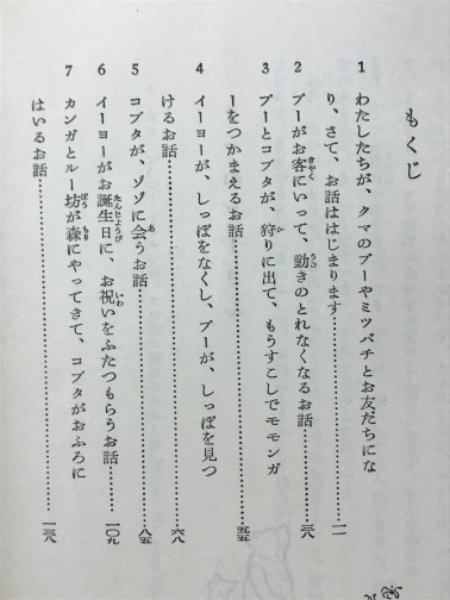 もくじ
1 わたしたちが、クマのプーやミツバチとお友だちにな
り、さて、お話ははじまります…………一一
2 プーがお客にいって、動きのとれなくなるお話…………三八
3 プーとコブタが、狩りに出て、もうすこしでモモンガ
ーをつかまえるお話…………五五
4 イーヨーが、しっぽをなくし、プーが、しっぽを見つ
けるお話…………六八
5 コブタが、ゾゾに会うお話…………八五
6 イーヨーがお誕生日に、お祝いをふたつもらうお話…………一〇九
7 カンガとルー坊が森にやってきて、コブタがおふろに
はいるお話…………一三八